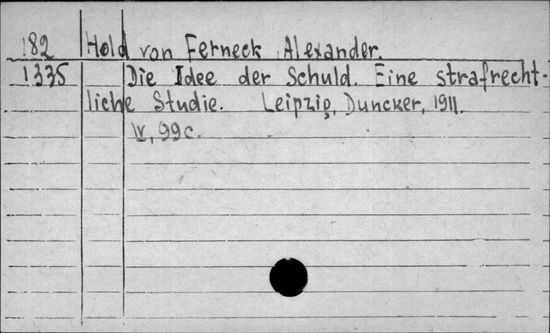 182 Hold von Ferneck, Alexander.
1335 Die Idee der Schuld. Eine strafrecht-
liche Studie. Leipzig, Duncker, 1911.
IV, 99 c.